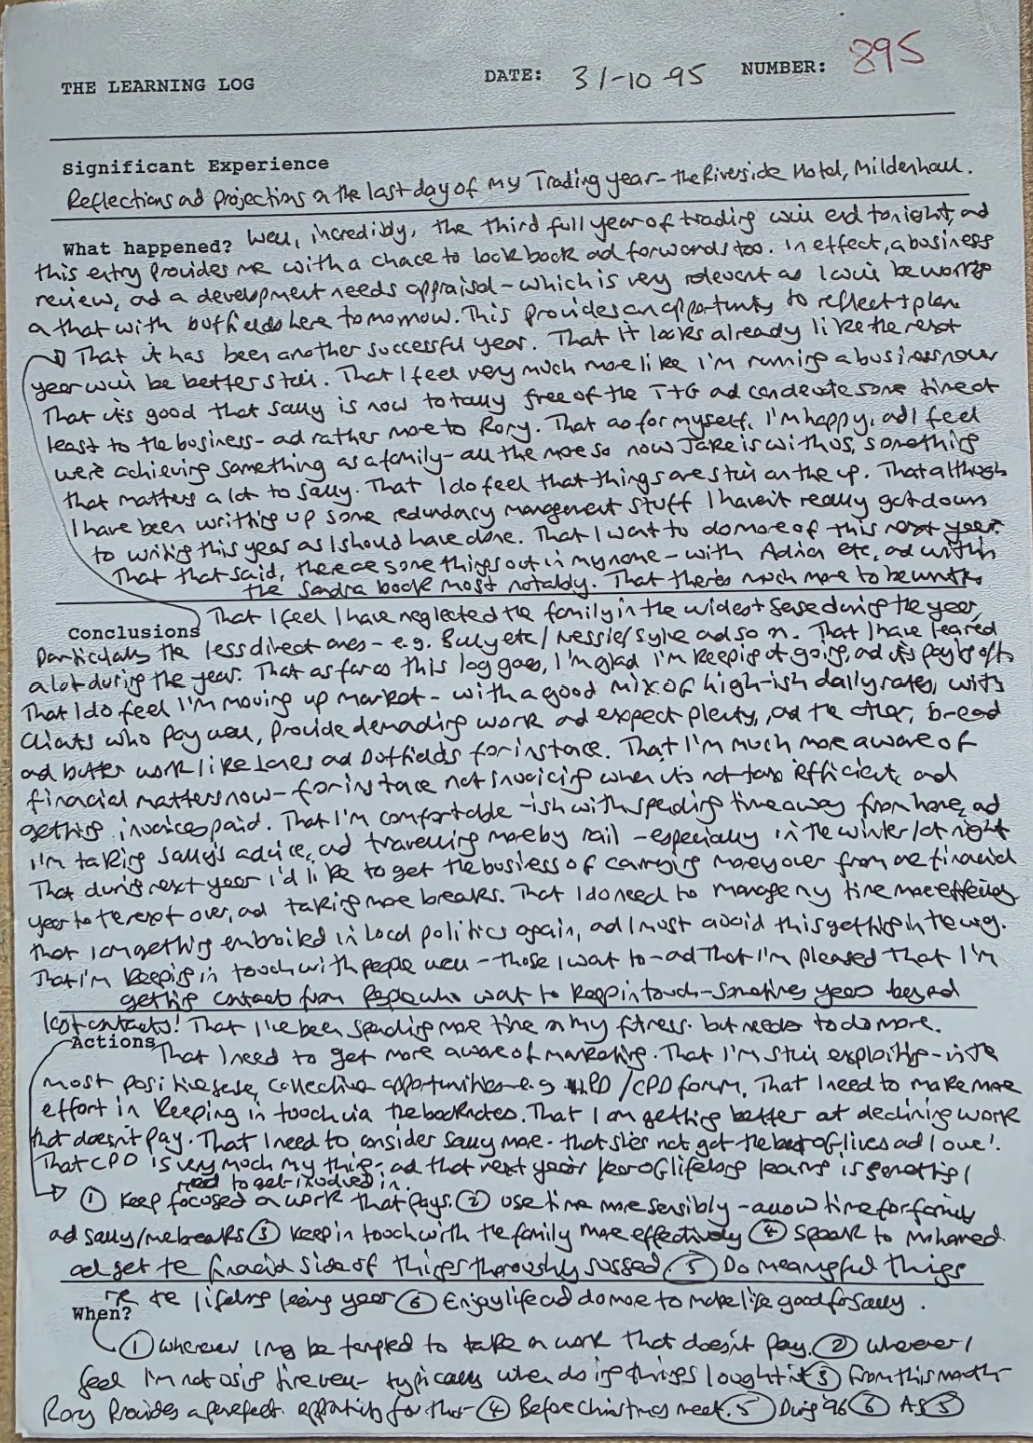 THE LEARNING LOG DATE: 31-10-95 NUMBER: 895
Significant Experience
Reflections ad projections on the last day of my Trading year - the Riverside Hotel, Mildenhall.
What happened? Well, incredibly, the third full year of trading will end tonight, ad
this entry provides me with a chace to look back ad forwards too. In effect, a business
review, ad a development needs appraisal - which is very relevant as I will be working
on that with here tomorrow. This provides an opportunity to reflect & plan
That it has been another successful year. That it looks already like the next
year will be better still. That I feel very much more like I'm running a business now
That it's good that Sally is now totally free of the T+G ad can devote some time at
least to the business - ad rather more to Rory. That as for myself, I'm happy, ad I feel
we're achieving something as a family - all the more so now Jake is with us, something
that matters a lot to Sally. That I do feel that things are still on the up. That although
I have been writing up some redundacy management stuff I haven't really got down
to writing this year as I should have done. That I want to do more of this next year.
That that said, there are some things out in my name - with etc, ad within
the Sandra book most notably. That there's much more to be written
That I feel I have neglected the family in the widest sense during the year,
Conclusions
particularly the less direct ones - e.g. Billy etc / Nessie / Sylvie ad so on. That I have learned
a lot during the year. That as far as this log goes, I'm glad I'm keeping it going, ad it's paying off
That I do feel I'm moving up market - with a good mix of high-ish daily rates, with
clients who pay well, provide demading work ad expect plenty, ad the other, bread
ad butter work like ad for instace. That I'm much more aware of
financial matters now - for instace not invoicing when it's not tax efficient, and
getting invoices paid. That I'm comfortable-ish with spending time away from home, ad
I'm taking Sally's advice, ad travelling more by rail - especially in the winter/at night
That during next year I'd like to get the business of carrying money over from one financial
year to the next over, ad taking more breaks. That I do need to manage my time more effectively
that I am getting embroiled in local politics again, ad I must avoid this getting in the way.
That I'm keeping in touch with people well - those I want to - ad That I'm pleased that I'm
getting contacts from people who want to keep in touch - sometimes years beyond
last contacts! That I've been spending more time on my fitness. but need to do more.
Actions That I need to get more aware of marketing. That I'm still exploiting - in the
most positive sense, collective opportunities e.g. /CPD forum. That I need to make more
effort in keeping in touch via the booknotes. That I am getting better at declining work
that doesn't pay. That I need to consider Sally more. that she's not got the of lives ad I owe!
That CPD is very much my thing, ad that next year's year of lifelong learning is something I
need to get involved in.
① Keep focused on work that pays. ② Use time more sensibly - allow time for family
ad Sally/me breaks ③ Keep in touch with the family more effectively ④ Speak to Mohamed
ad get the financial side of things thoroughly sussed. ⑤ Do meaningful things
re the lifelong learning year ⑥ Enjoy life ad do more to make life good for Sally.
When?
① Whenever I may be tempted to take on work that doesn't pay. ② Whenever I
feel I'm not using time well - typically when doing things I oughtn't ③ From this month -
Rory provides a perfect opportunity for that - ④ Before christmas meet. ⑤ During '96 ⑥ As ⑤